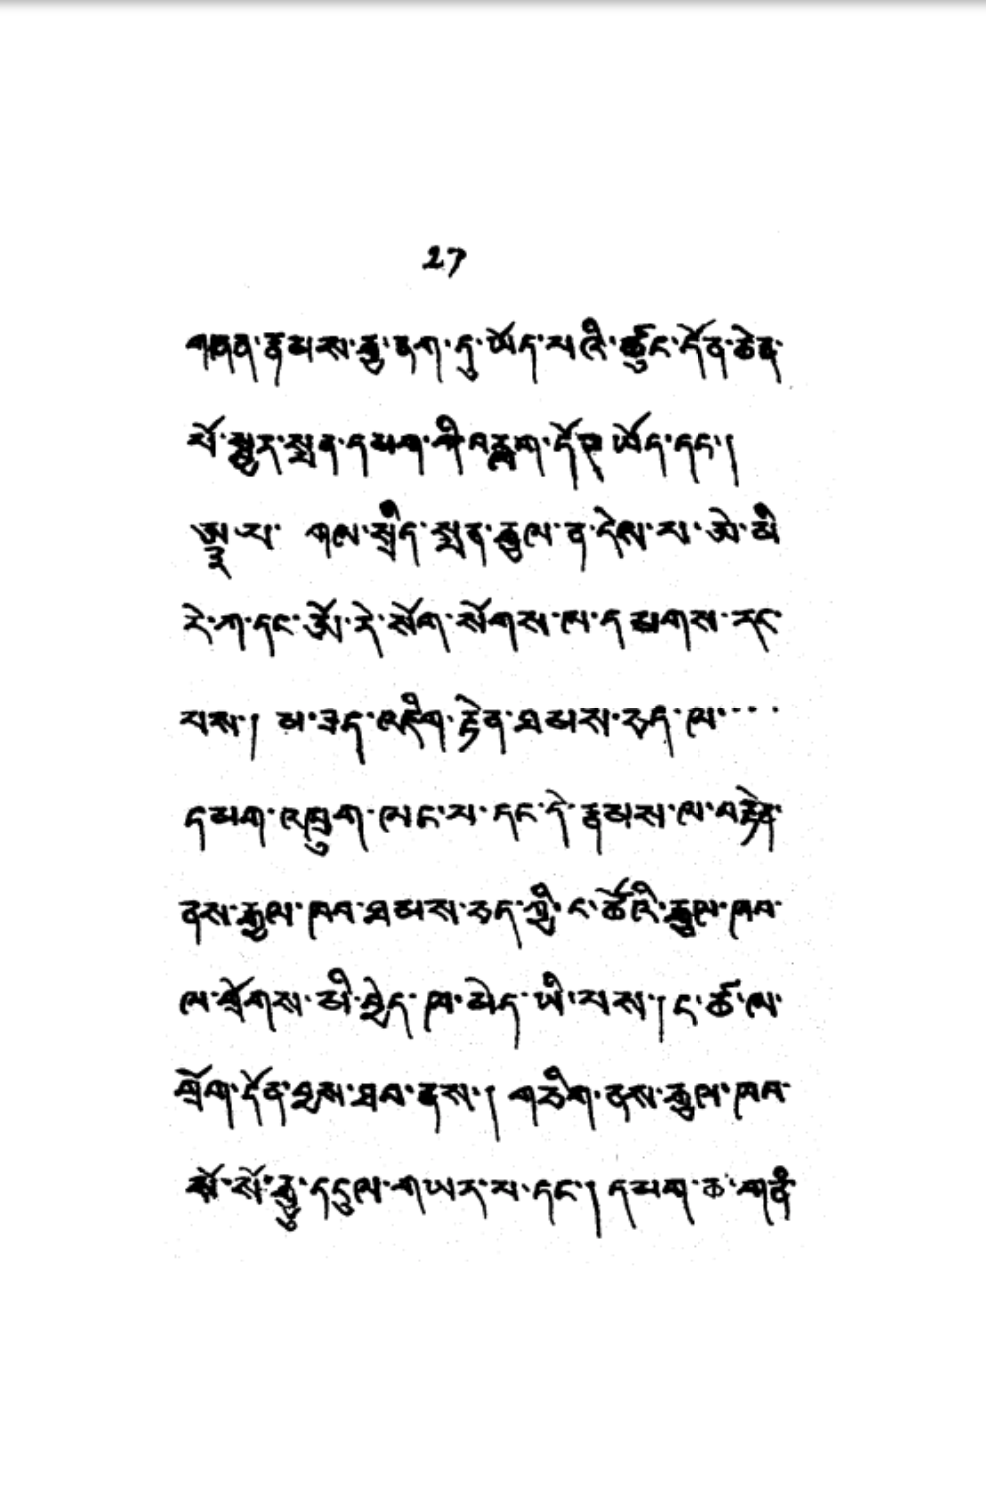 27
གཞན་རྣམས་རྒྱ་ནག་དུ་ཡོད་པའི་ཚོང་དོན་ཆེན་
པོ་སྦྱར་སྨན་དམག་གི་བརླག་དོཥ་ཡོད་དང་།
པ་ གལ་སྲིད་སྨན་རྒྱལ་ན་དེས་པ་ཨེ་མི་
རི་ཀ་དང་ཨོ་རེ་སོག་སོགས་ལ་དམགས་རང་
པས། མ་ཟད་འཇིག་རྟེན་ཐམས་ཅད་ལ་....
དམག་འཁྲུག་ལང་པ་དང་དེ་རྣམས་ལ་བརྟེན་
ནས་རྒྱལ་ཁབ་ཐམས་ཅད་ཀྱི་ང་ཚོའི་རྒྱལ་ཁབ་
ལ་གྲོགས་མི་བྱེད་ཁ་མེད་ཡི་པས། ང་ཚོ་ལ་
གྲོག་དོན་བྱས་ཐབ་ནས། གཅིག་ནས་རྒྱལ་ཁབ་
སོ་སོ་རྒྱུ་དངུལ་གཡར་པ་དང་། དམག་ཆ་གནི